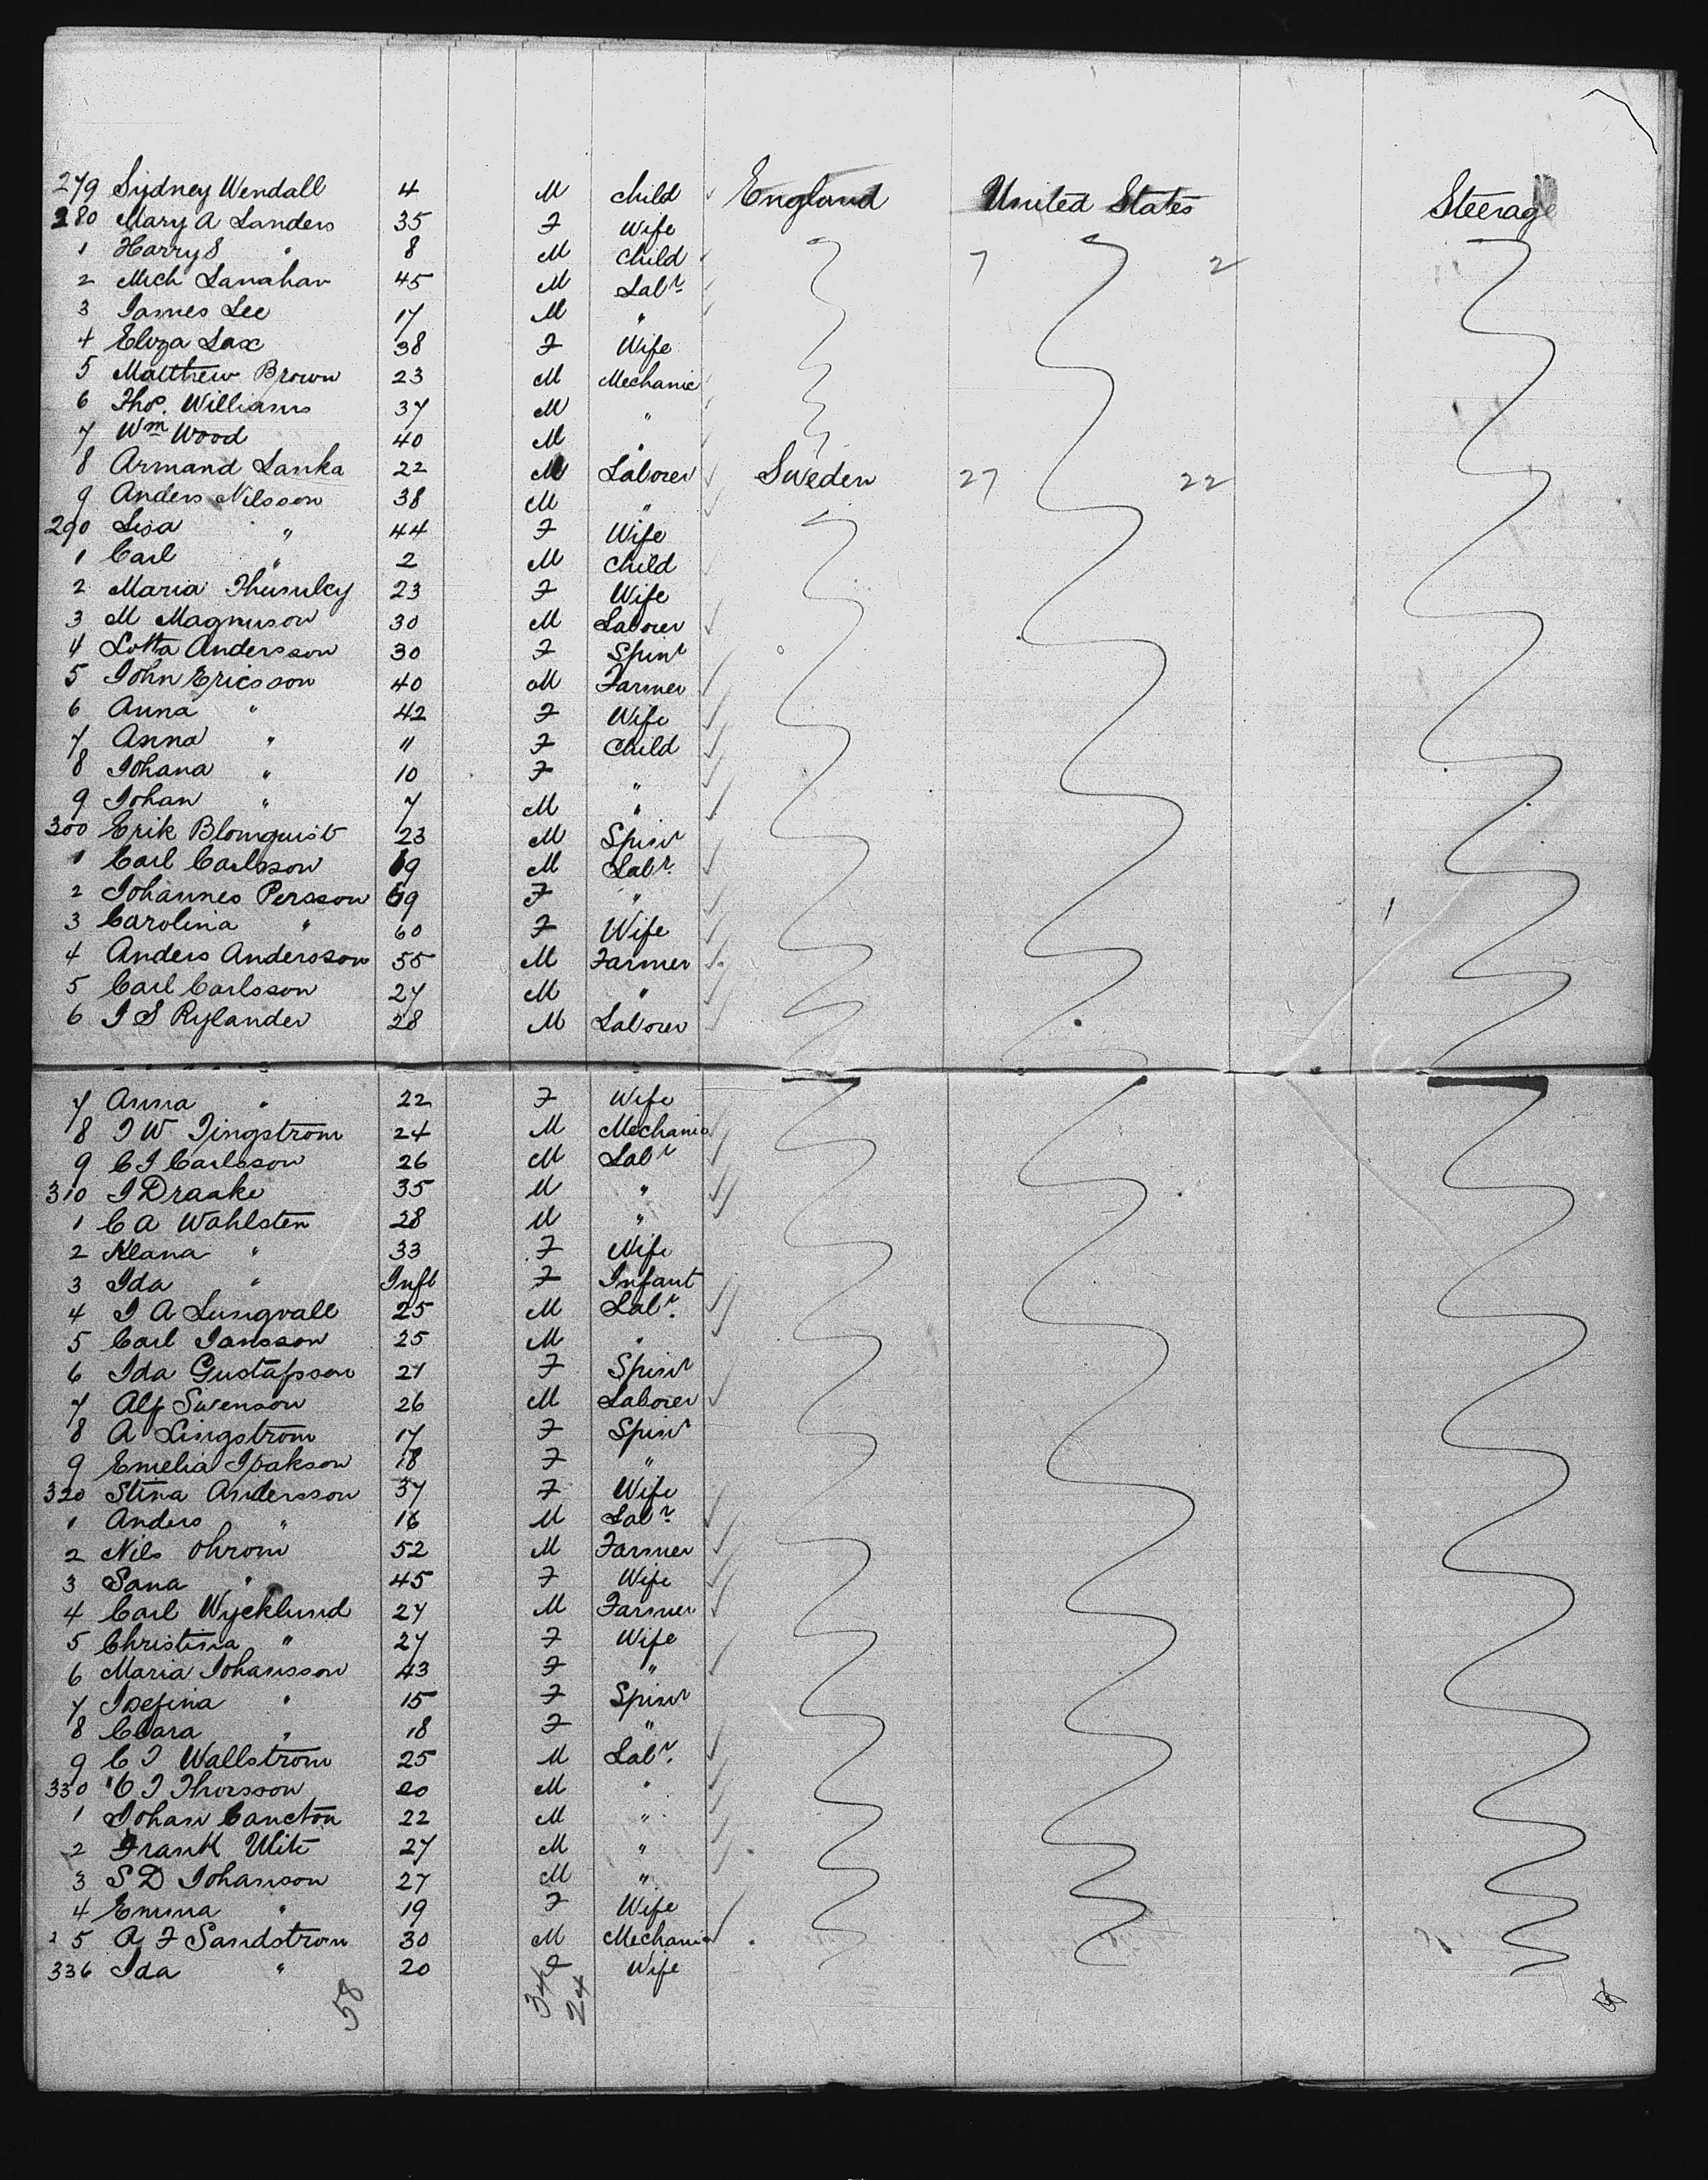 279 Sydney Wendall 4 M Child England United States Steerage
280 Mary A Landers 35 F Wife
1 Harry S " 8 M Child 7 2
2 Mich Lanahan 45 M Labr
3 James Lee 17 M "
4 Eliza Lax 38 F Wife
5 Matthew Brown 23 M Mechanic
6 Thos. Williams 37 M "
7 Wm Wood 40 M "
8 Armand Lanka 22 M Laborer Sweden 27 22
9 Anders Nilsson 38 M "
290 Lisa " 44 F Wife
1 Carl " 2 M Child
2 Maria 23 F Wife
3 M Magnuson 30 M Laborer
4 Lotta Andersson 30 F Spinr
5 John Ericsson 40 M Farmer
6 Anna " 42 F Wife
7 Anna " 11 F Child
8 Johana " 10 F "
9 Johan " 7 M "
300 Erik Blomquist 23 M Spinr
1 Carl Carlsson 19 M Labr.
2 Johannes Persson 69 F "
3 Carolina " 60 F Wife
4 Anders Andersson 55 M Farmer
5 Carl Carlsson 27 M "
6 J S Rylander 28 M Laborer
7 Anna " 22 F Wife
8 J W Tingstrom 24 M Mechanic
9 C J Carlsson 26 M Labr
310 J Draake 35 M "
1 C A Wahlsten 28 M "
2 " 33 F Wife
3 Ida " Inft F Infant
4 J A Lungvall 25 M Labr.
5 Carl Jansson 25 M "
6 Ida Gustafsson 27 F Spinr
7 Alf Swenson 26 M Laborer
8 A Lingstrom 17 F Spinr
9 Emelia Isakson 18 F "
320 Stina Andersson 37 F Wife
1 Anders " 16 M Labr
2 Nils Ohrom 52 M Farmer
3 Sana " 45 F Wife
4 Carl Wycklund 27 M Farmer
5 Christina " 27 F Wife
6 Maria Johansson 43 F "
7 Josefina " 15 F Spinr
8 Clara " 18 F "
9 C J Wallstrom 25 M Labr.
330 C J Thorsson 20 M "
1 Johan Cancton 22 M "
2 Frank Uite 27 M "
3 S D Johanson 27 M "
4 Emma " 19 F Wife
5 A F Sandstrom 30 M Mechanic
336 Ida " 20 F Wife
58 34 24